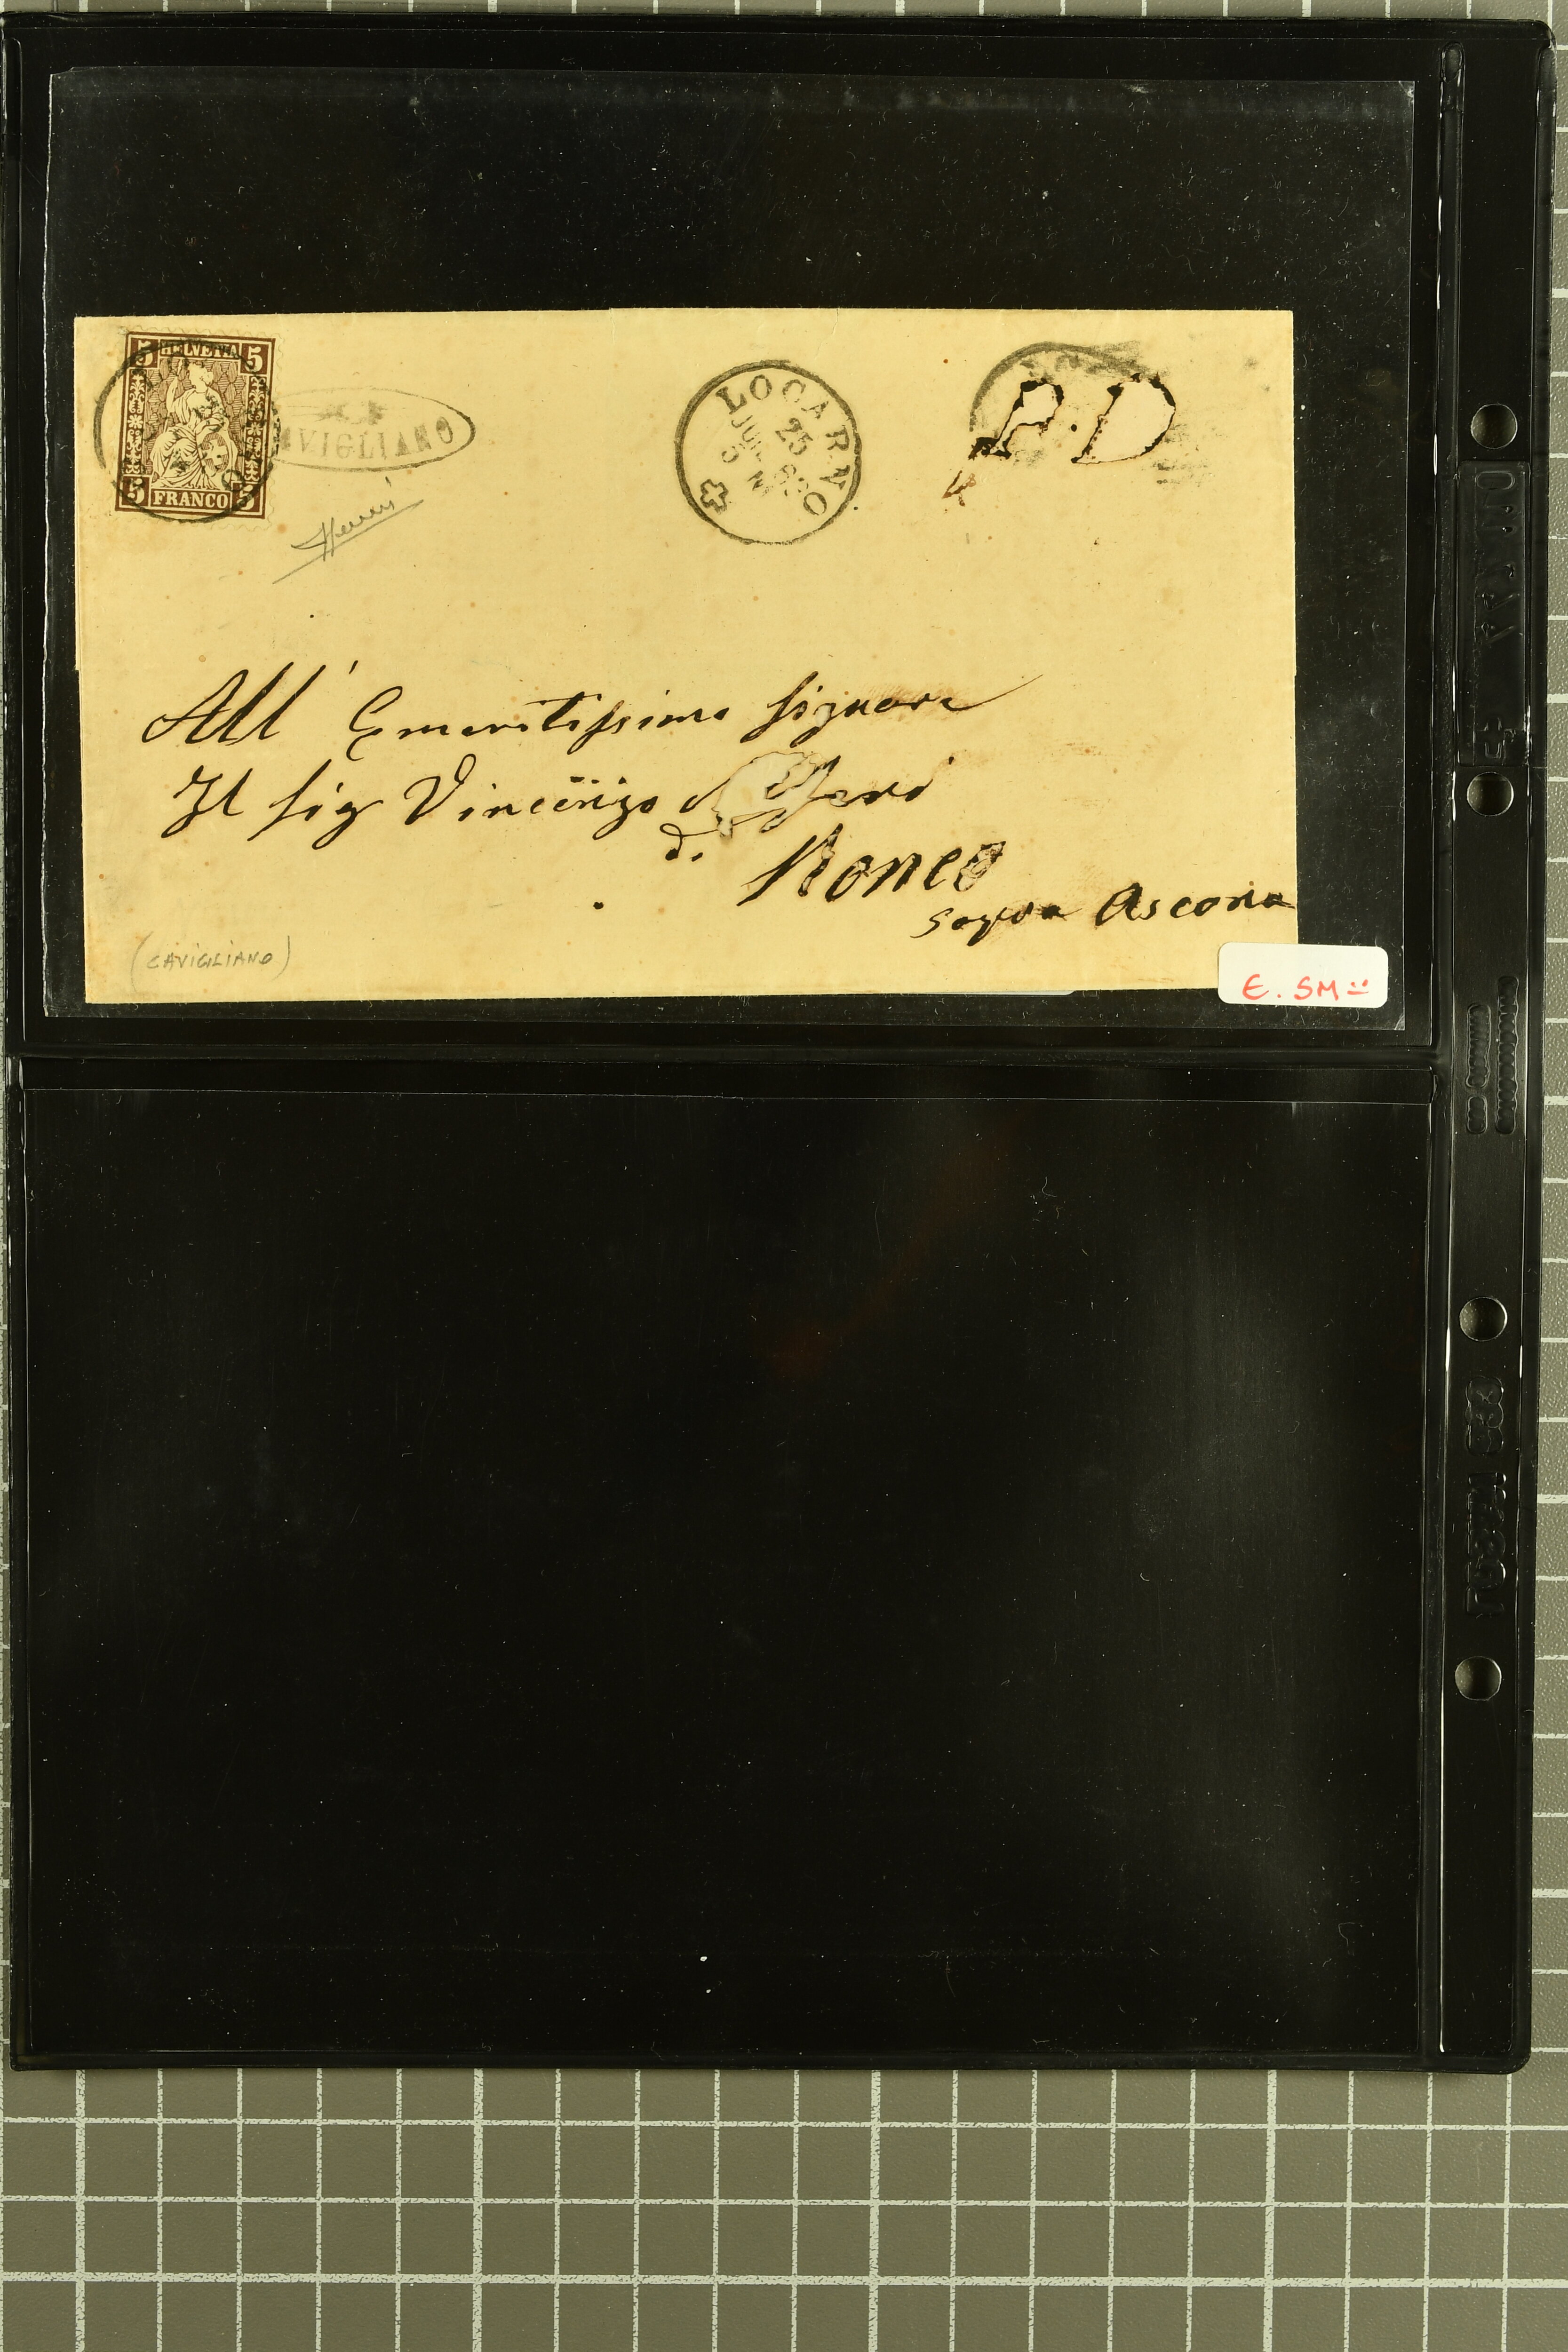 5 HELVETIA 5
5 FRANCO 5
AVIGLIANO
LOCARNO
25
P.D
All' Emeritissimo Signore
Il Sig Vincenzo
di Ronco
Sopra Ascona
(CAVIGLIANO)
E. SM